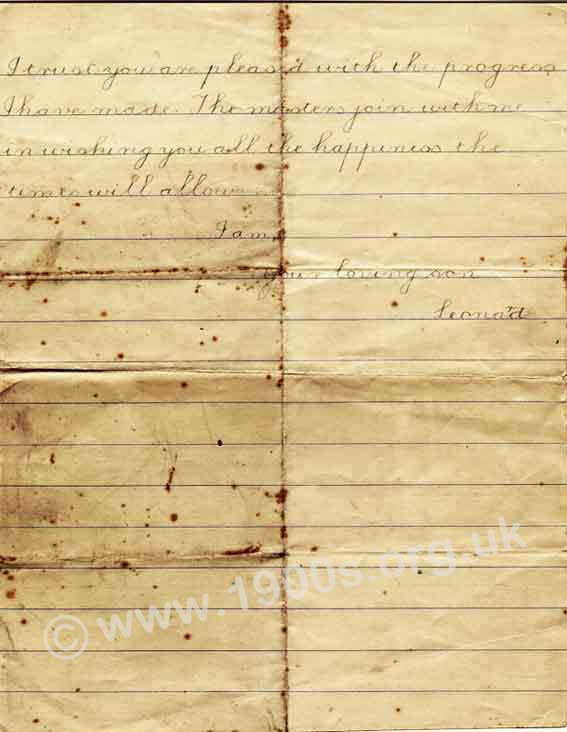 I trust you are pleas'd with the progress
I have made. The masters join with me
in wishing you all the happiness the
times will allow
I am,
your loving son
Leonard
© www.1900s.org.uk